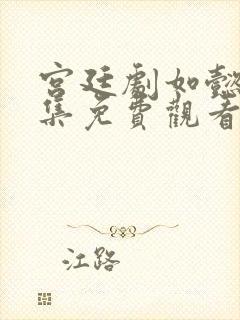 宮廷劇如懿
集免費觀看
江路